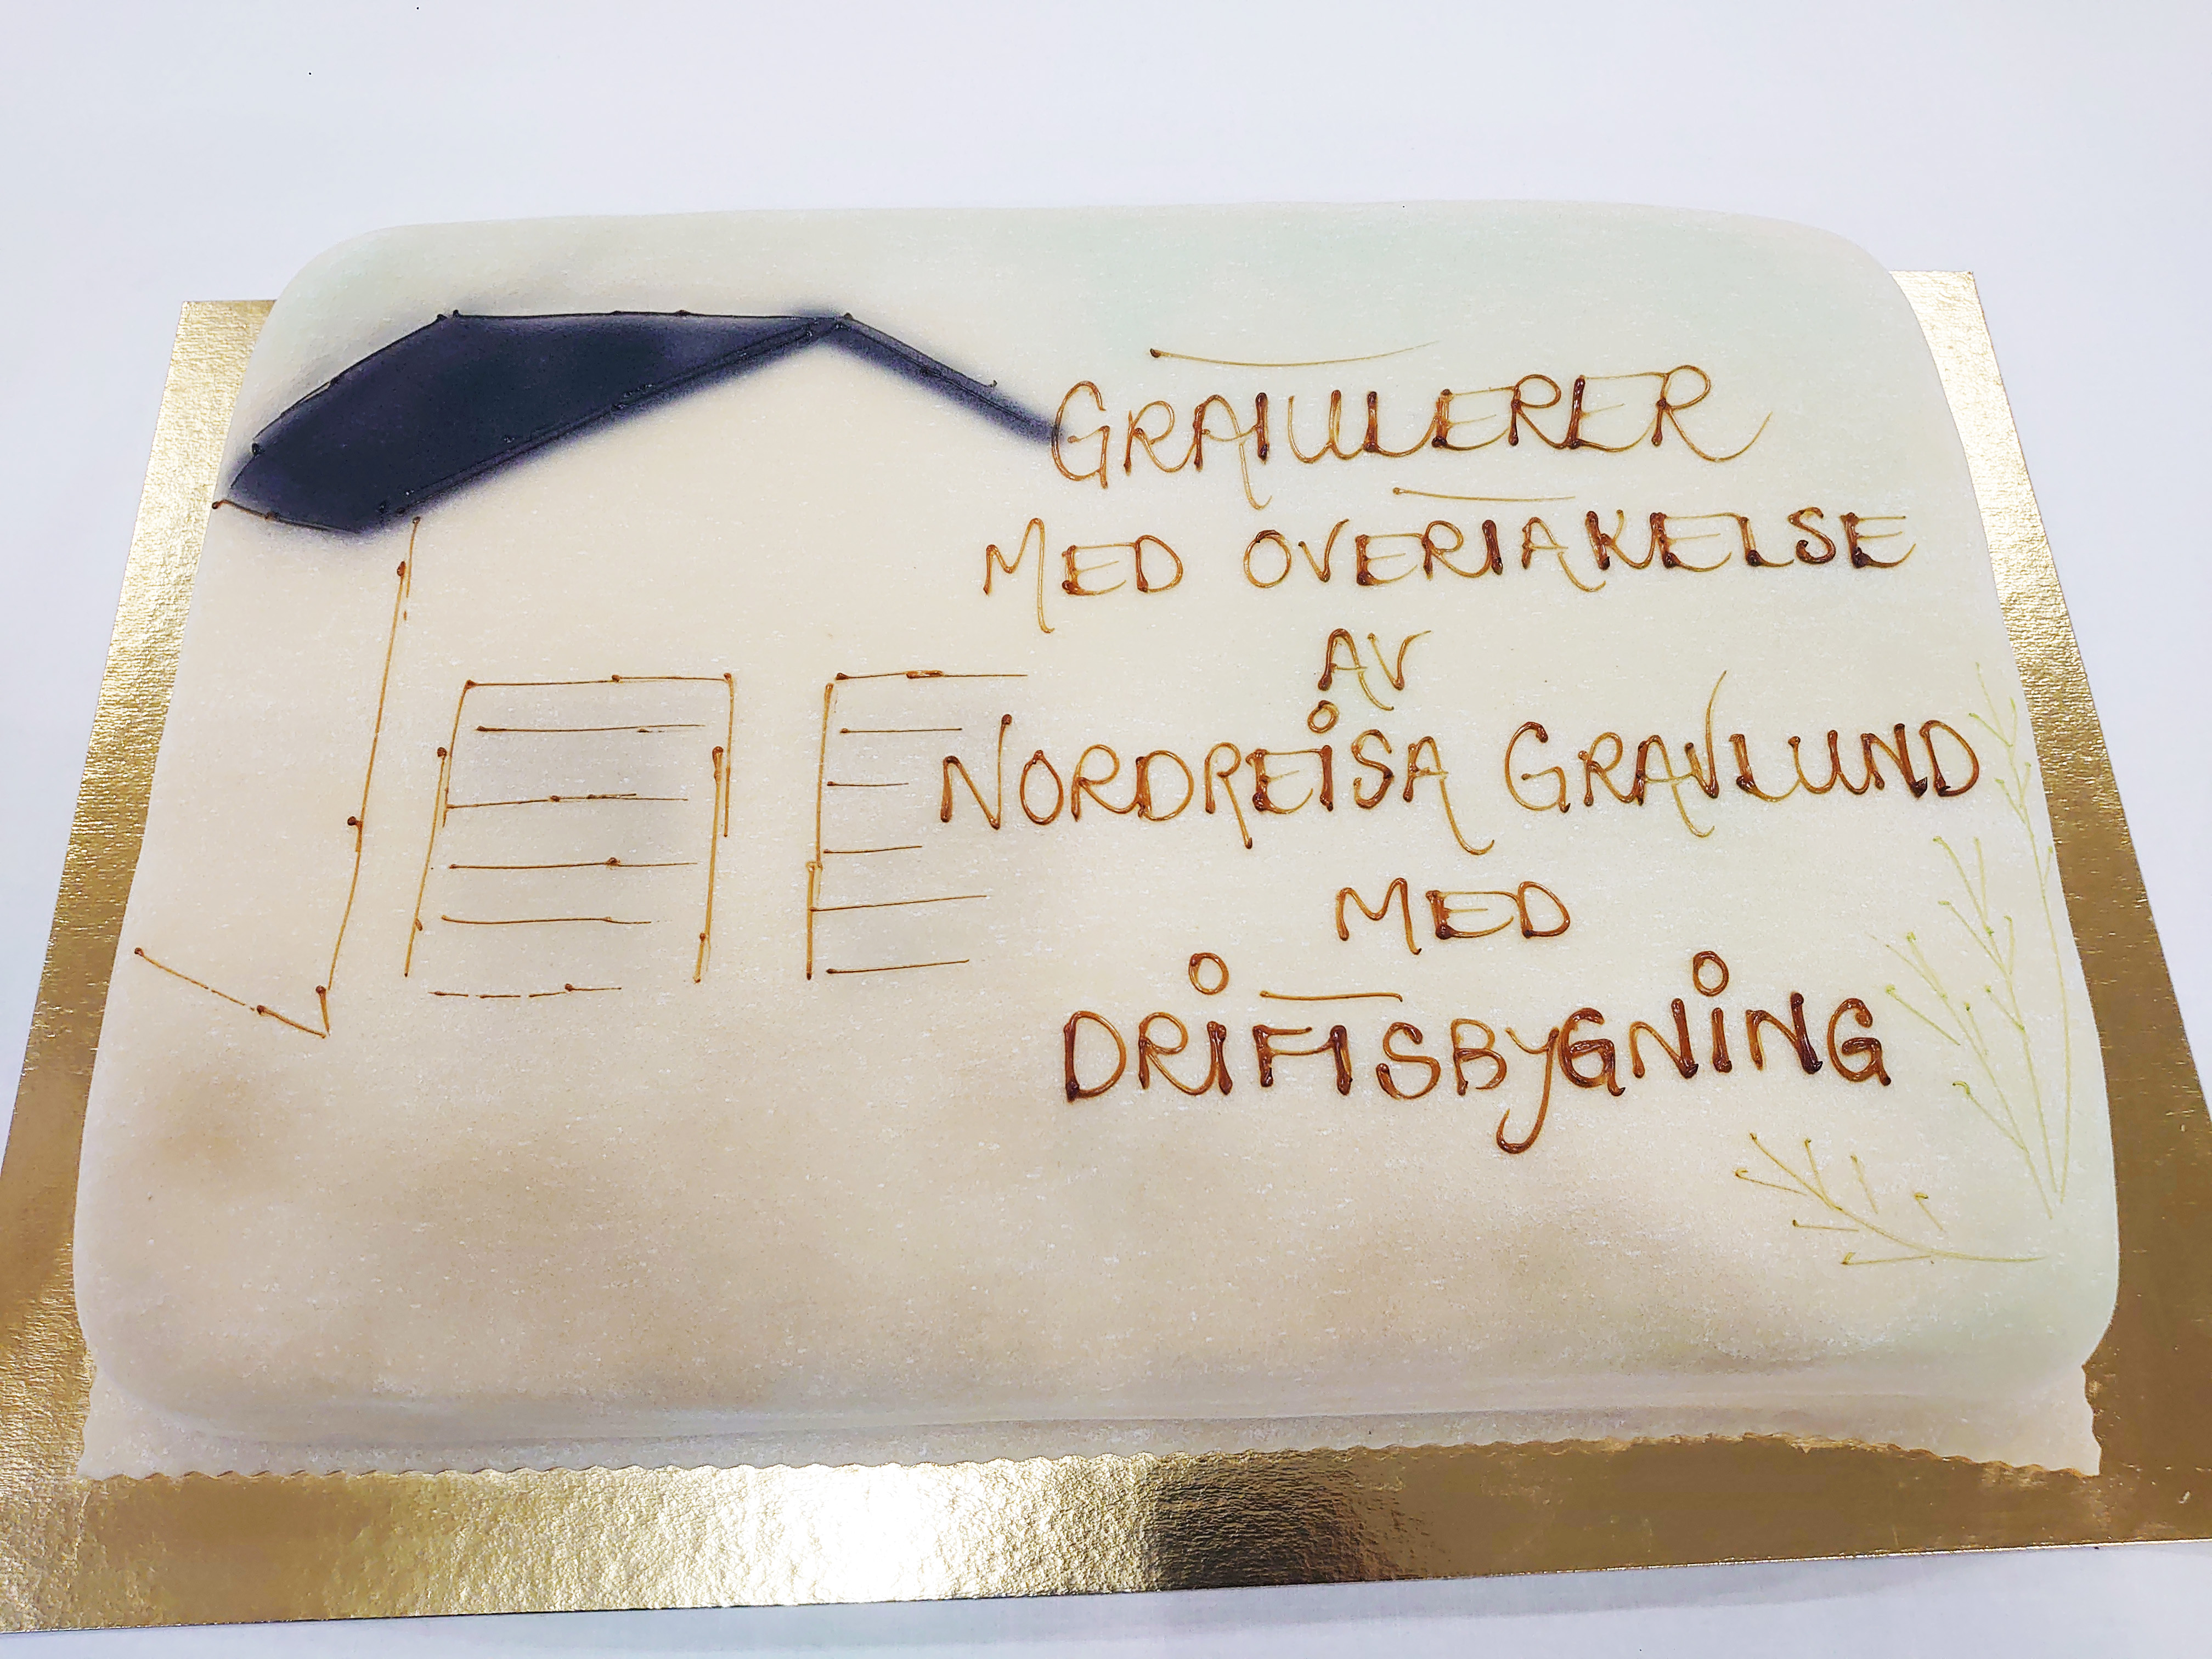 GRATULERER
MED OVERTAKELSE
AV
NORDREISA GRAVLUND
MED
DRIFTSBYGNING